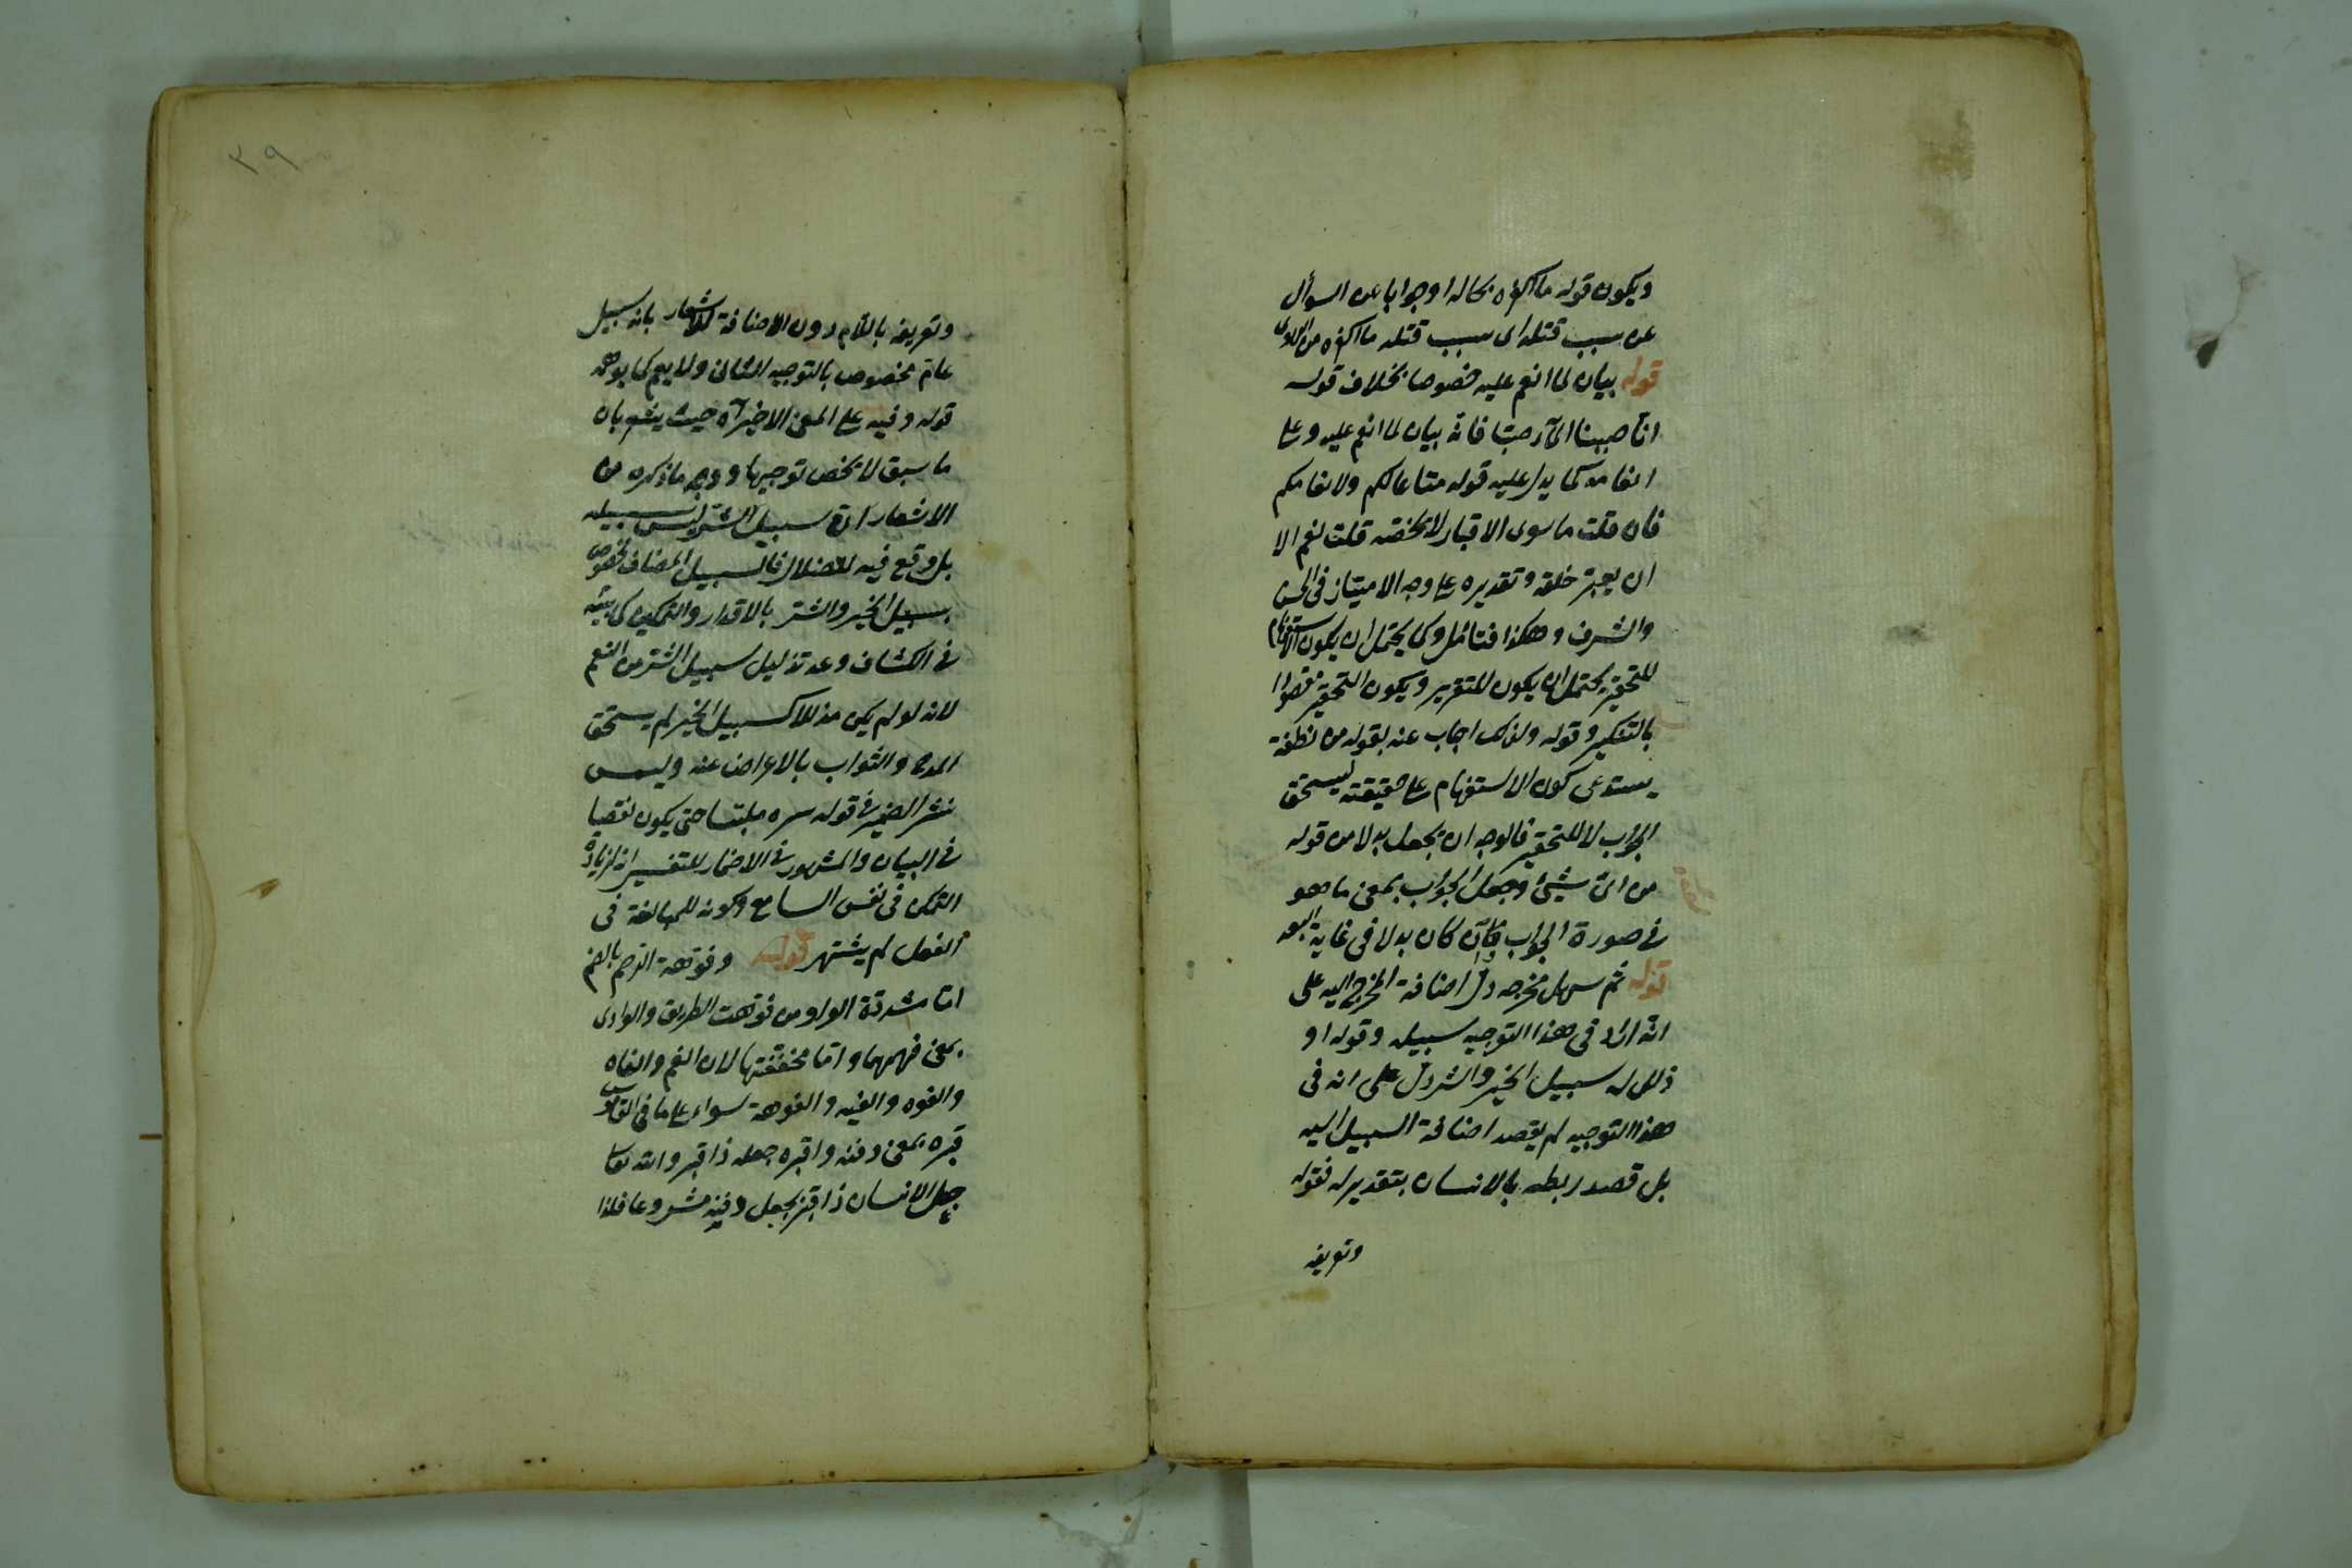 ويكون قوله ما اكفره بحاله او جوابا عن السؤال
عن سبب قتله اى سبب قتله ما اكفره من
قوله بيان لما انعم عليه خصوصا بخلاف قوله
انا صببنا الماء صبا فانه بيان لما انعم عليه وعلى
انعامه كما يدل عليه قوله متاعا لكم ولانعامكم
فان قلت ما سوى الاقبار لا يخصه قلت نعم الا
ان يعتبر خلقه وتقديره على وجه الامتياز فى الحسن
والشرف وهكذا فتامل وكما يحتمل ان يكون الاستفهام
للتحقير يحتمل ان يكون للتقرير ويكون التحقير
بالتنكير وقوله ولذلك اجاب عنه بقوله من نطفة
يستدعى كون الاستفهام على حقيقته ليستحق
الجواب لا للتحقير فالوجه ان يجعل بدلا من قوله
من اى شيئ وجعل الجواب بمعنى ما هو
فى صورة الجواب وان كان بدلا فى غاية البعد
قوله ثم سهل مخرجه دل اضافة المخرج اليه على
انه اراد فى هذا التوجيه سبيله وقوله او
ذلل له سبيل الخير والشر دل على انه فى
هذا التوجيه لم يقصد اضافة السبيل اليه
بل قصد ربطه بالانسان بتقدير له فقوله
وتعريفه
٣٩
وتعريفه باللام دون الاضافة للاشعار بانه سبيل
عام مخصوص بالتوجيه الثانى ولا يعم كما يوهمه
قوله وفيه على المعنى الاخير آه حيث يشعر بان
ما سبق لا يخص توجيها ووجه ما ذكره من
الاشعار ان سبيل الشر ليس سبيله
بل وقع فيه للضلال فالسبيل المضاف مخصوص
بسبيل الخير والشر بالاقدار والتمكين كما بينه
فى الكشاف وعد تذليل سبيل الشر من النعم
لانه لو لم يكن مذللا كسبيل الخير لم يستحق
المدح والثواب بالاعراض عنه وليس
نشر الضمير فى قوله يسره ملبسا حتى يكون نقصا
فى البيان والمشهور فى الاضمار للتفسير انه لزيادة
التمكن فى نفس السامع وكونه للمبالغة فى
الفعل لم يشتهر قوله وفوهة الرحم بالضم
اما مشددة الواو من فوهة الطريق والوادى
بمعنى فمهما واما مخففتها لان الفم والفاه
والفوه والفيه والفوهة سواء على ما فى القاموس
قبره بمعنى دفنه واقبره جعله ذا قبر والله تعالى
جعل الانسان ذا قبر بجعل دفنه مشروعا فلذا